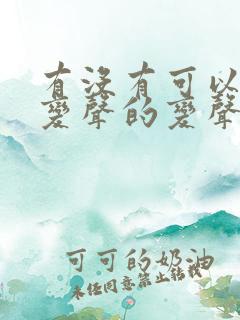 有没有可以
变声的变声
可可的奶油
未经同意禁止转载